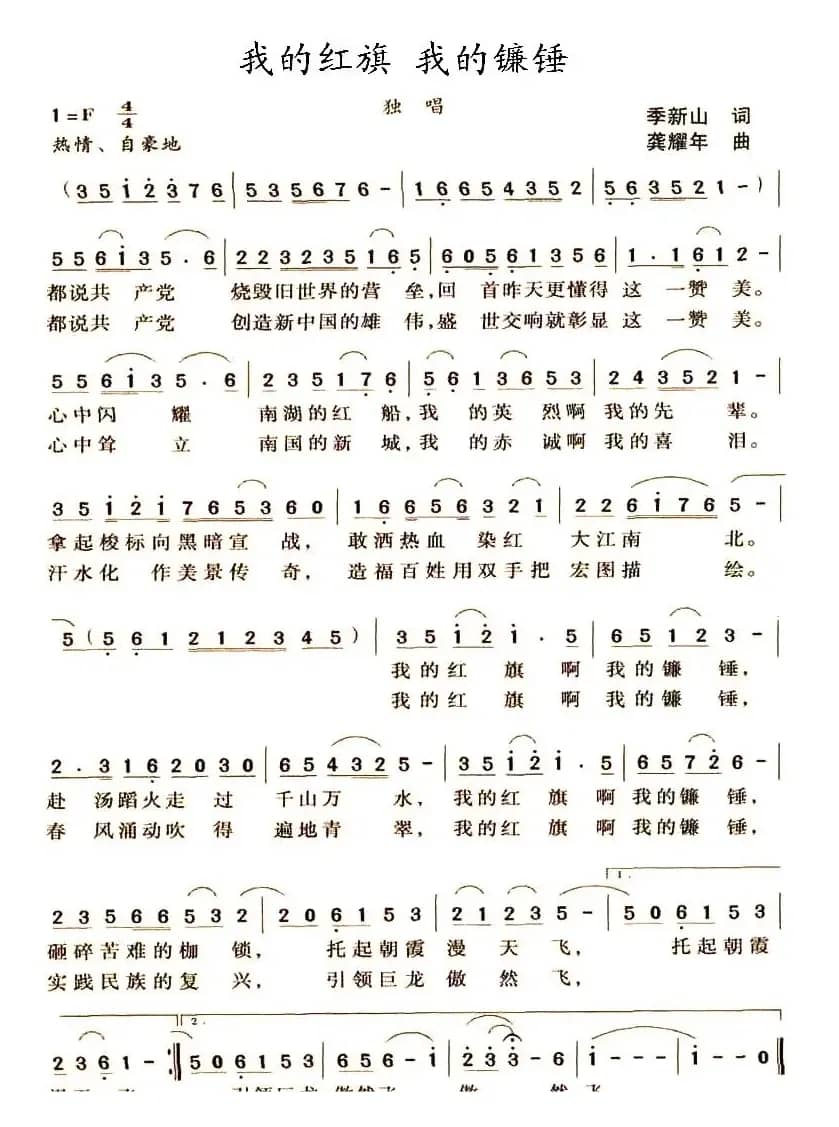 我的红旗 我的镰锤
1=F 4/4
独 唱
季新山 词
热情、自豪地
龚耀年 曲
(3 5 1 2 3 7 6 | 5 3 5 6 7 6 - | 1 6 6 5 4 3 5 2 | 5 6 3 5 2 1 - )|
5 5 6 1 3 5 · 6 | 2 2 3 2 3 5 1 6 5 | 6 0 5 6 1 3 5 6 | 1 · 1 6 1 2 -
都说共 产党 烧毁旧世界的营 垒,回 首昨天更懂得 这 一赞 美。
都说共 产党 创造新中国的雄 伟,盛 世交响就彰显 这 一赞 美。
5 5 6 1 3 5 · 6 | 2 3 5 1 7 6 | 5 6 1 3 6 5 3 | 2 4 3 5 2 1 - |
心中闪 耀 南湖的红 船,我 的英 烈啊 我的先 辈。
心中耸 立 南国的新 城,我 的赤 诚啊 我的喜 泪。
3 5 1 2 1 7 6 5 3 6 0 | 1 6 6 5 6 3 2 1 | 2 2 6 1 7 6 5 - |
拿起梭标向黑暗宣 战, 敢洒热血 染红 大江南 北。
汗水化 作美景传 奇, 造福百姓用双手把 宏图描 绘。
5 ( 5 6 1 2 1 2 3 4 5 ) | 3 5 1 2 1 · 5 | 6 5 1 2 3 - |
我的红 旗 啊 我的镰 锤,
我的红 旗 啊 我的镰 锤,
2 · 3 1 6 2 0 3 0 | 6 5 4 3 2 5 - | 3 5 1 2 1 · 5 | 6 5 7 2 6 - |
赴 汤蹈火走 过 千山万 水, 我的红 旗 啊 我的镰 锤,
春 风涌动吹 得 遍地青 翠, 我的红 旗 啊 我的镰 锤,
1.
2 3 5 6 6 5 3 2 | 2 0 6 1 5 3 | 2 1 2 3 5 - | 5 0 6 1 5 3 |
砸碎苦难的枷 锁, 托起朝霞 漫 天 飞, 托起朝霞
实践民族的复 兴, 引领巨龙 傲 然 飞,
2.
2 3 6 1 - :| 5 0 6 1 5 3 | 6 5 6 - 1 | 2 3 3 - 6 | 1 - - - | 1 - - 0 ‖